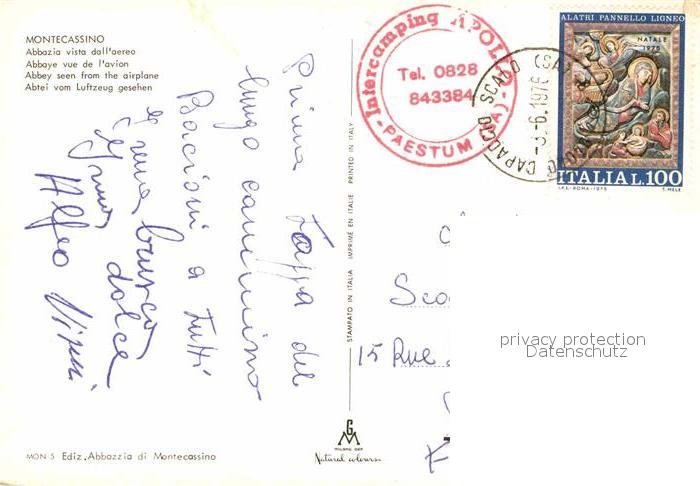 MONTECASSINO
Abbazia vista dall'aereo
Abbaye vue de l'avion
Abbey seen from the airplane
Abtei vom Luftzeug gesehen
Prima Tappa del
lungo cammino
Bacioni a tutti
Alfeo
dolce
MON 5 Ediz. Abbazzia di Montecassino
STAMPATO IN ITALIA IMPRIMÉ EN ITALIE PRINTED IN ITALY
GM
MILANO
Natural colours
Intercamping APOLLO
Tel. 0828
843384
-PAESTUM (SA)-
CAPACCIO SCALO (SA)
-3.-6.1976
ALATRI PANNELLO LIGNEO
NATALE
1975
ITALIA L.100
I.P.S.-ROMA-1975 T. MELE
15 Rue
privacy protection
Datenschutz